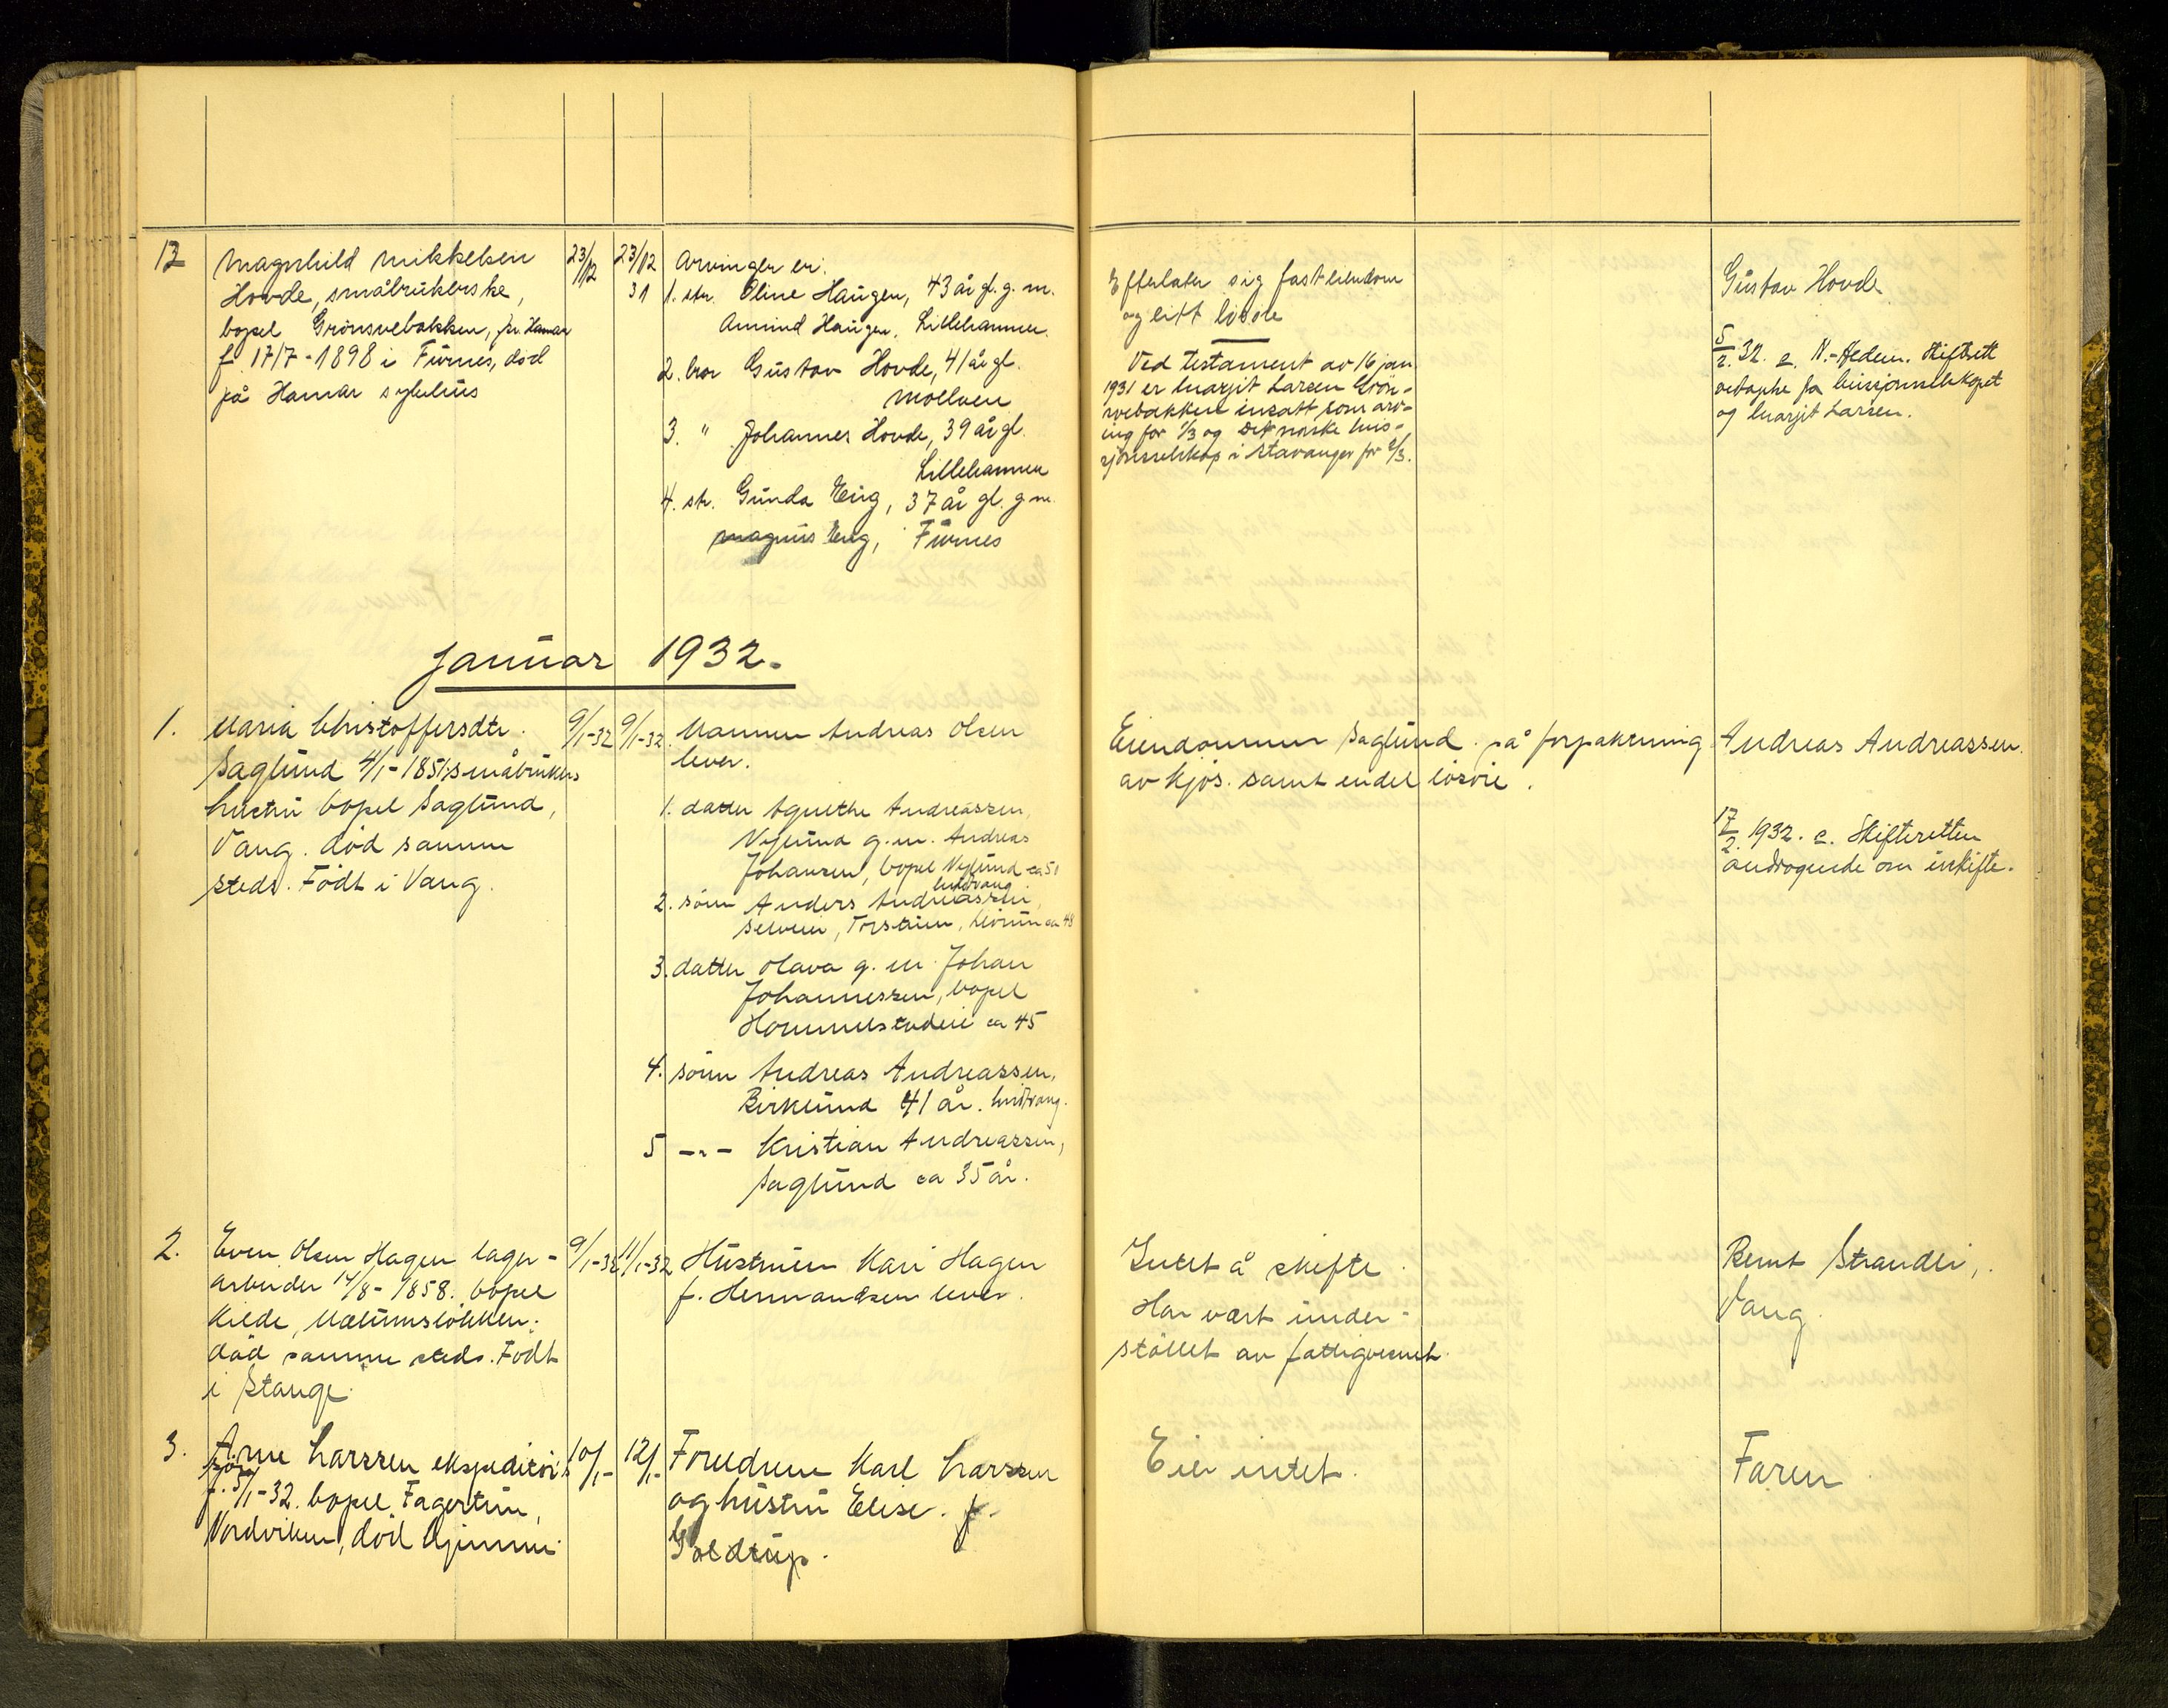 13
Magnhild Mikkelsen
Hovde, småbrukerske,
bopel Grønsvebakken, pr. Hamar
f. 17/7-1898 i Furnes, død
på Hamar sykehus
23/12
23/12
31
Arvinger er:
1. str. Oline Haugen, 43 år gl. g. m.
Amund Haugen, Lillehammer.
2. bror Gustav Hovde, 41 år gl.
Moelven
3. " Johannes Hovde, 39 år gl.
Lillehammer
4. str. Gunda Eng, 37 år gl. g m.
Magnus Eng, Furnes
Efterlater sig fast eiendom
og litt løsøre
Ved testament av 16 jan
1931 er Marjit Larsen Grøn-
svebakken insatt som arv-
ing for 1/3 og Det norske mis-
sjonsselskap i Stavanger for 2/3.
Gustav Hovde
5/2.32. e. N.-Hedem. Skifterett
vedtaphe for misjonsselskapet
og Marjit Larsen.
Januar 1932.
1.
Maria Christoffersdtr.
Saglund 4/1-1851, småbrukers
hustru bopel Saglund,
Vang. død samme
steds. Født i Vang.
9/1-32
9/1-32.
Mannen Andreas Olsen
lever.
1. datter Agnethe Andreassen,
Nylund g. m. Andreas
Johansen, bopel Nylund ca 51
2. sønn Anders Andreassen,
ca 48
3. datter Olava g. m. Johan
Johannessen, bopel
Hommelstadeie ca 45
4. sønn Andreas Andreassen,
Birklund 41 år.
5 -"- Kristian Andreassen,
Saglund ca 35 år.
Eiendommen Saglund på forpaktning
av Kjos. samt endel løsøre.
Andreas Andreassen.
17/2. 1932. e. Skifteretten
andragende om uskifte.
2.
Even Olsen Hagen lager-
arbeider 14/8-1858. bopel
Kilde, Mælumsløkken.
død samme steds. Født
i Stange.
9/1-32
11/1-32
Hustruen Kari Hagen
f. Hermandsen lever.
Intet å skifte.
Har vært under-
støttet av fattigvesnet.
Bernt Strandli,
Vang.
3.
Arne Larssen ekspeditørs
sønn
f. 5/1-32. bopel Fagertun,
Nordviken, død hjemme
10/1-
12/1-
Foreldrene Karl Larssen
og hustru Elise. f.
Goldrup.
Eier intet.
Faren